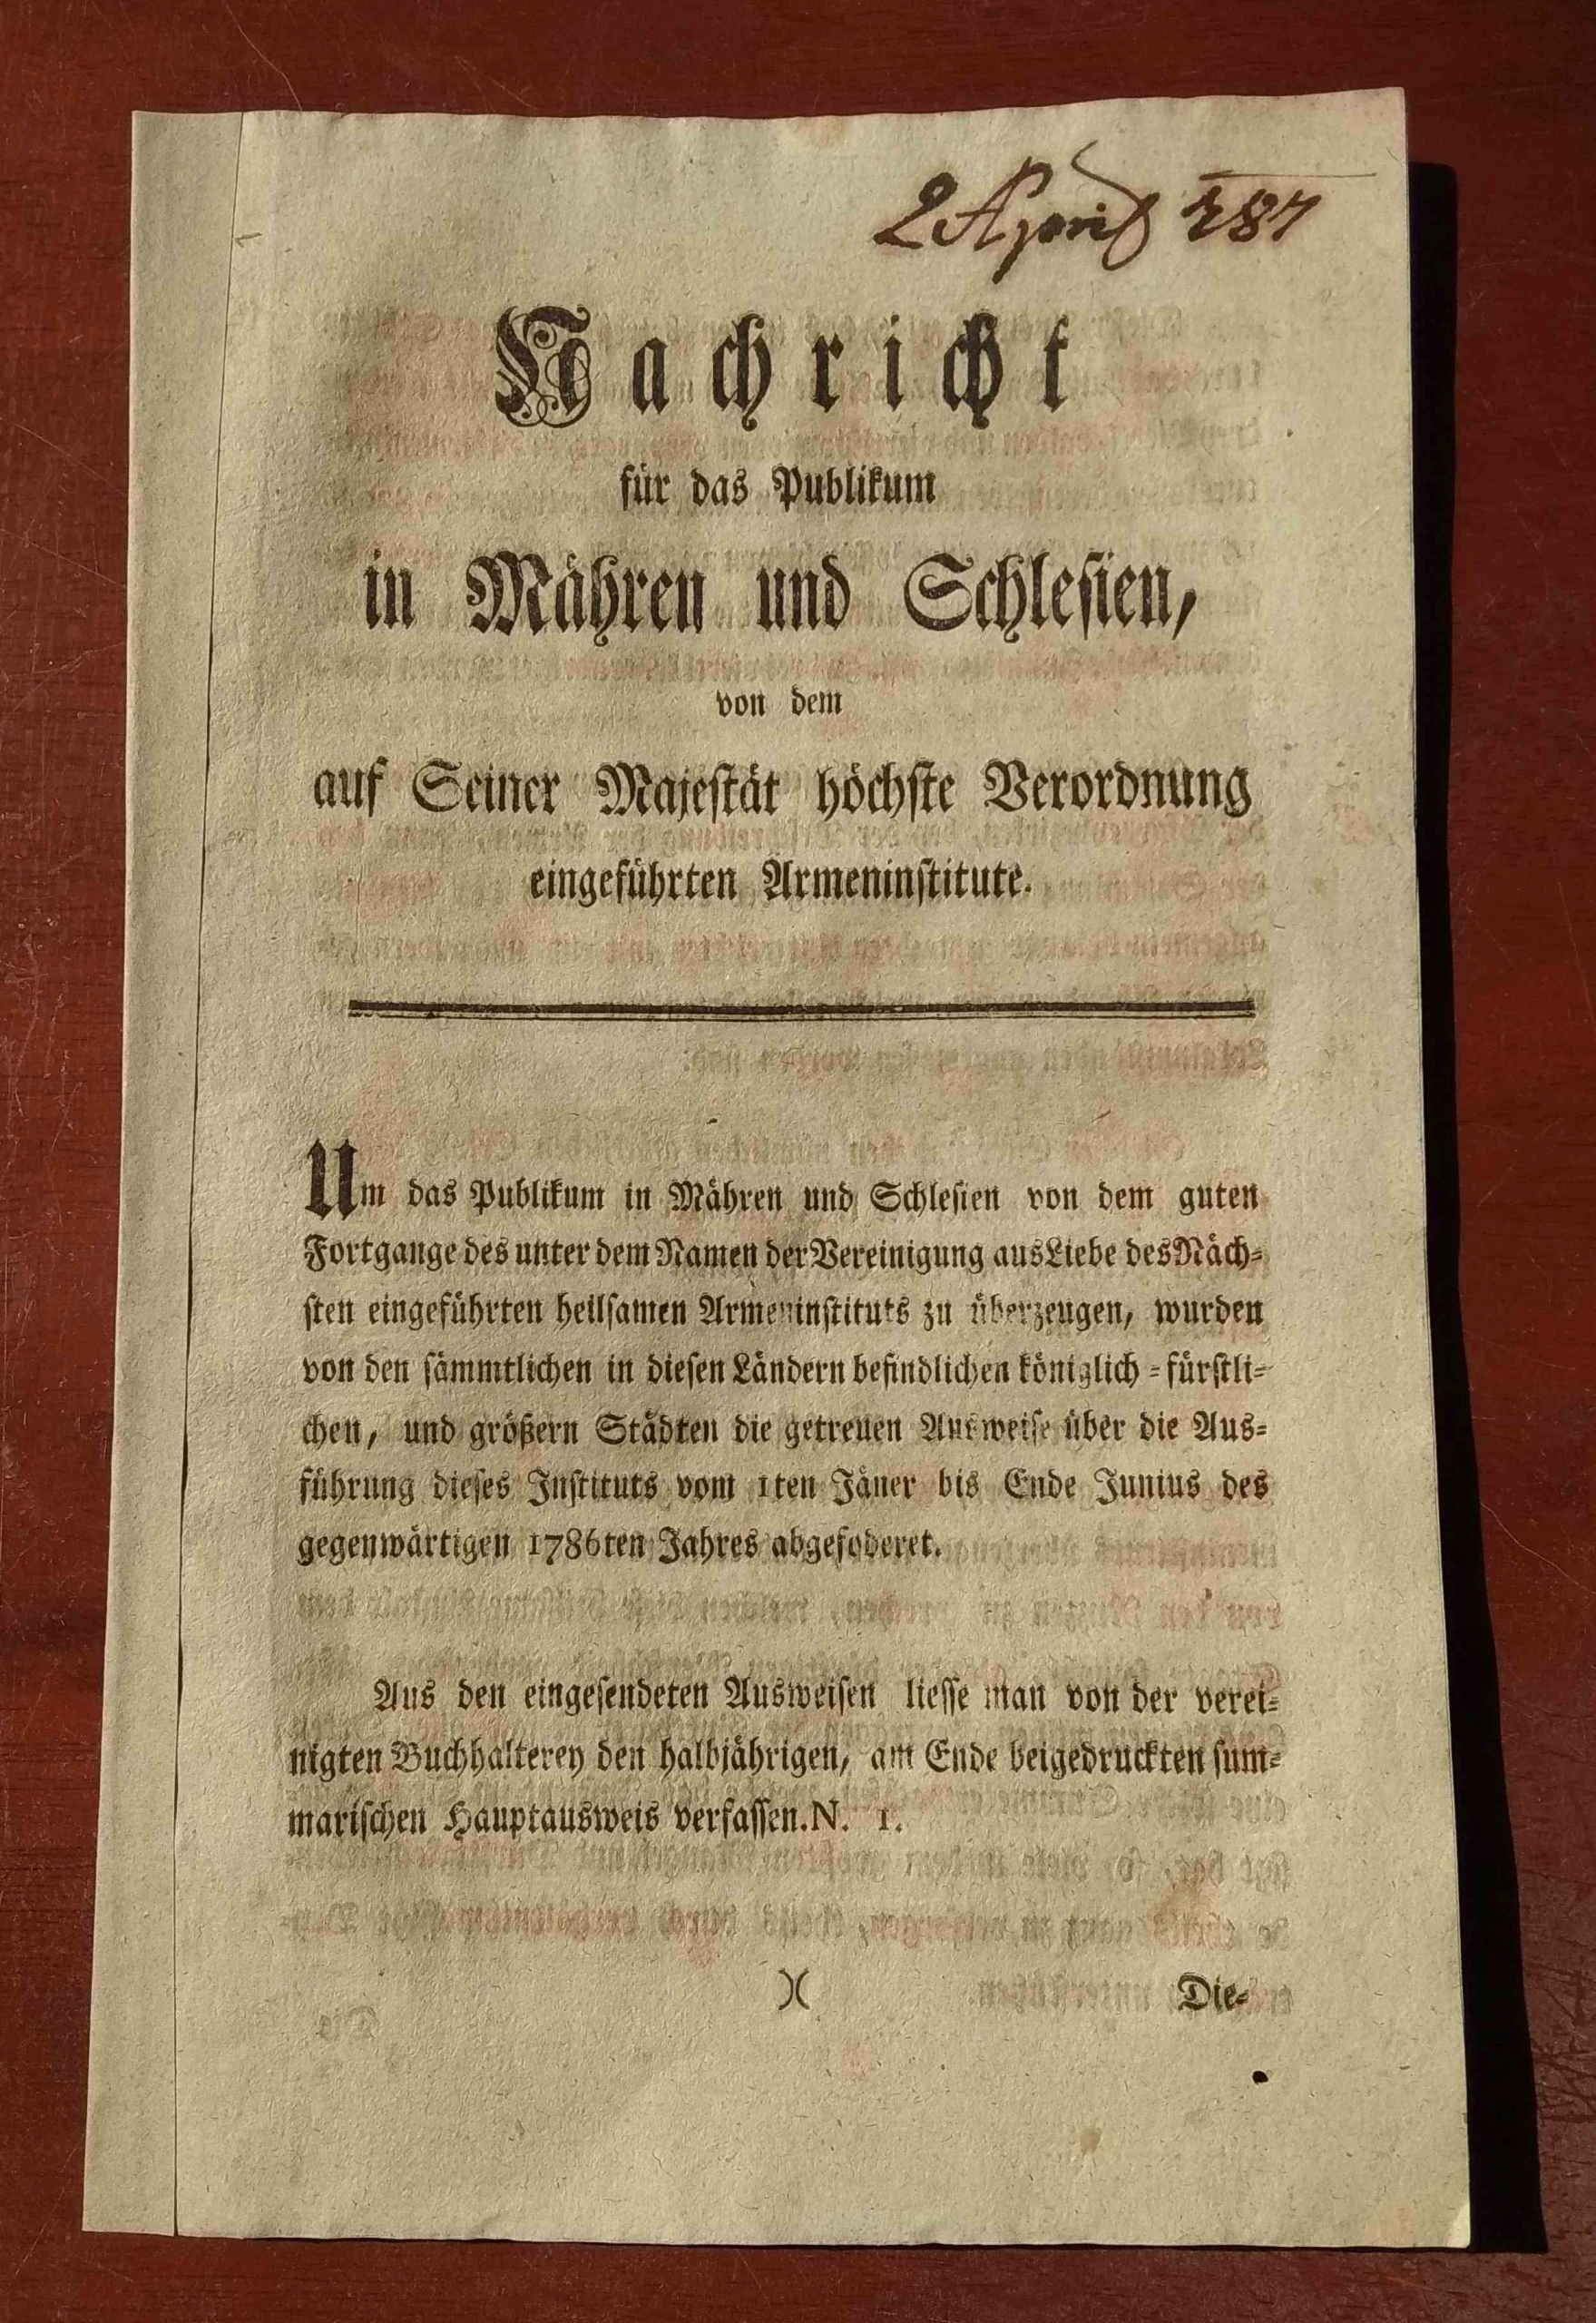 2 April 787
Nachricht
für das Publikum
in Mähren und Schlesien,
von dem
auf Seiner Majestät höchste Verordnung
eingeführten Armeninstitute.
Um das Publikum in Mähren und Schlesien von dem guten
Fortgange des unter dem Namen der Vereinigung aus Liebe des Näch=
sten eingeführten heilsamen Armeninstituts zu überzeugen, wurden
von den sämmtlichen in diesen Ländern befindlichen königlich = fürstli=
chen, und größern Städten die getreuen Ausweise über die Aus=
führung dieses Instituts vom 1ten Jäner bis Ende Junius des
gegenwärtigen 1786ten Jahres abgefoderet.
Aus den eingesendeten Ausweisen liesse man von der verei=
nigten Buchhalterey den halbjährigen, am Ende beigedruckten sum=
marischen Hauptausweis verfassen. N. 1.
)( Die=